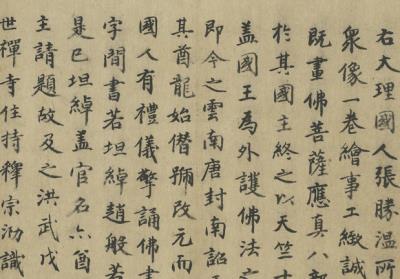 右大理國人張勝溫所
衆像一卷繪事工緻誠
既畫佛菩薩應真八部
於其國主終之以天竺
盖國王為外護佛法之
即今之雲南唐封南詔
其酋龍始僭號改元而
國人有禮儀擎誦佛書
字間書若坦綽趙般若
是巳坦綽盖官名六酋
主請題故及之洪武戊
世禪寺住持釋宗泐識